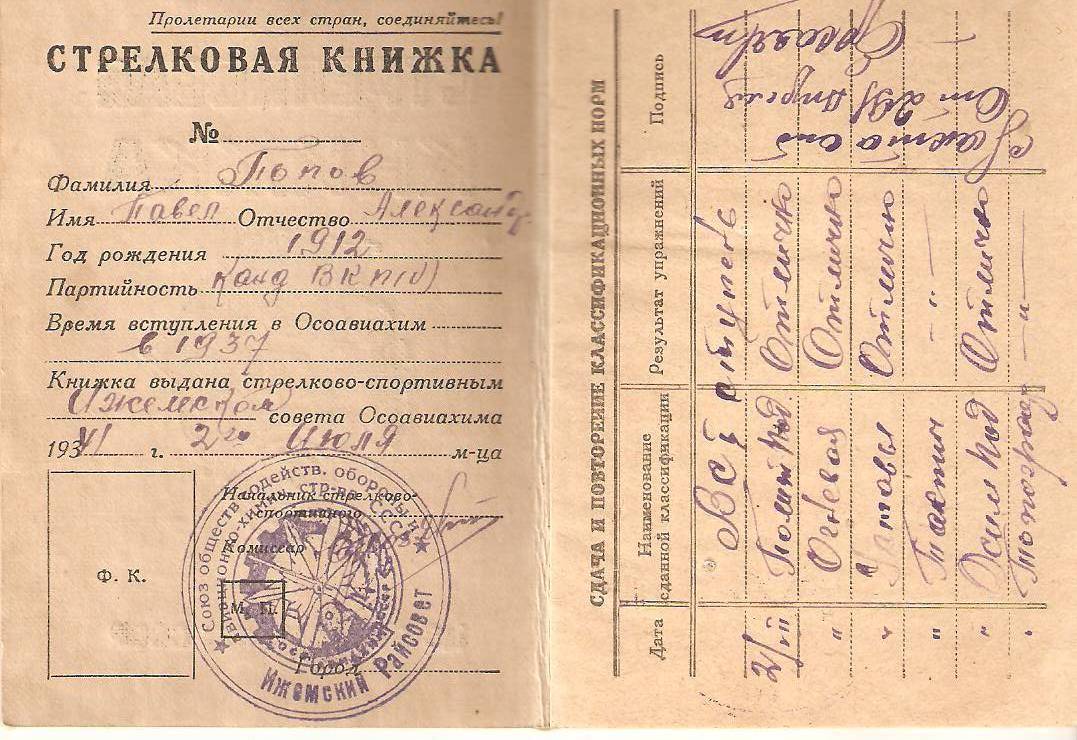 Пролетарии всех стран, соединяйтесь!
СТРЕЛКОВАЯ КНИЖКА
№
Фамилия Попов
Имя Павел Отчество Александр.
Год рождения 1912
Партийность Канд ВКП(б)
Время вступления в Осоавиахим
в 1937
Книжка выдана стрелково-спортивным
Ижемском совета Осоавиахима
1941 г. 2го Июля м-ца
Начальник стрелково-
спортивного
Комиссар
Ф. К.
М. П.
Город
Союз обществ содейств. обороны и
авиационно-химич. стр-ва СССР
Ижемский Райсовет
СДАЧА И ПОВТОРЕНИЕ КЛАССИФИКАЦИОННЫХ НОРМ
Дата Наименование сданной классификации Результат упражнений Подпись
ВС I ступень
2/VII Отлично
" Огневая Отлично
" Отлично
" Тактич — " —
" Отлично
" Топограф — " —
от 29/ Апреля